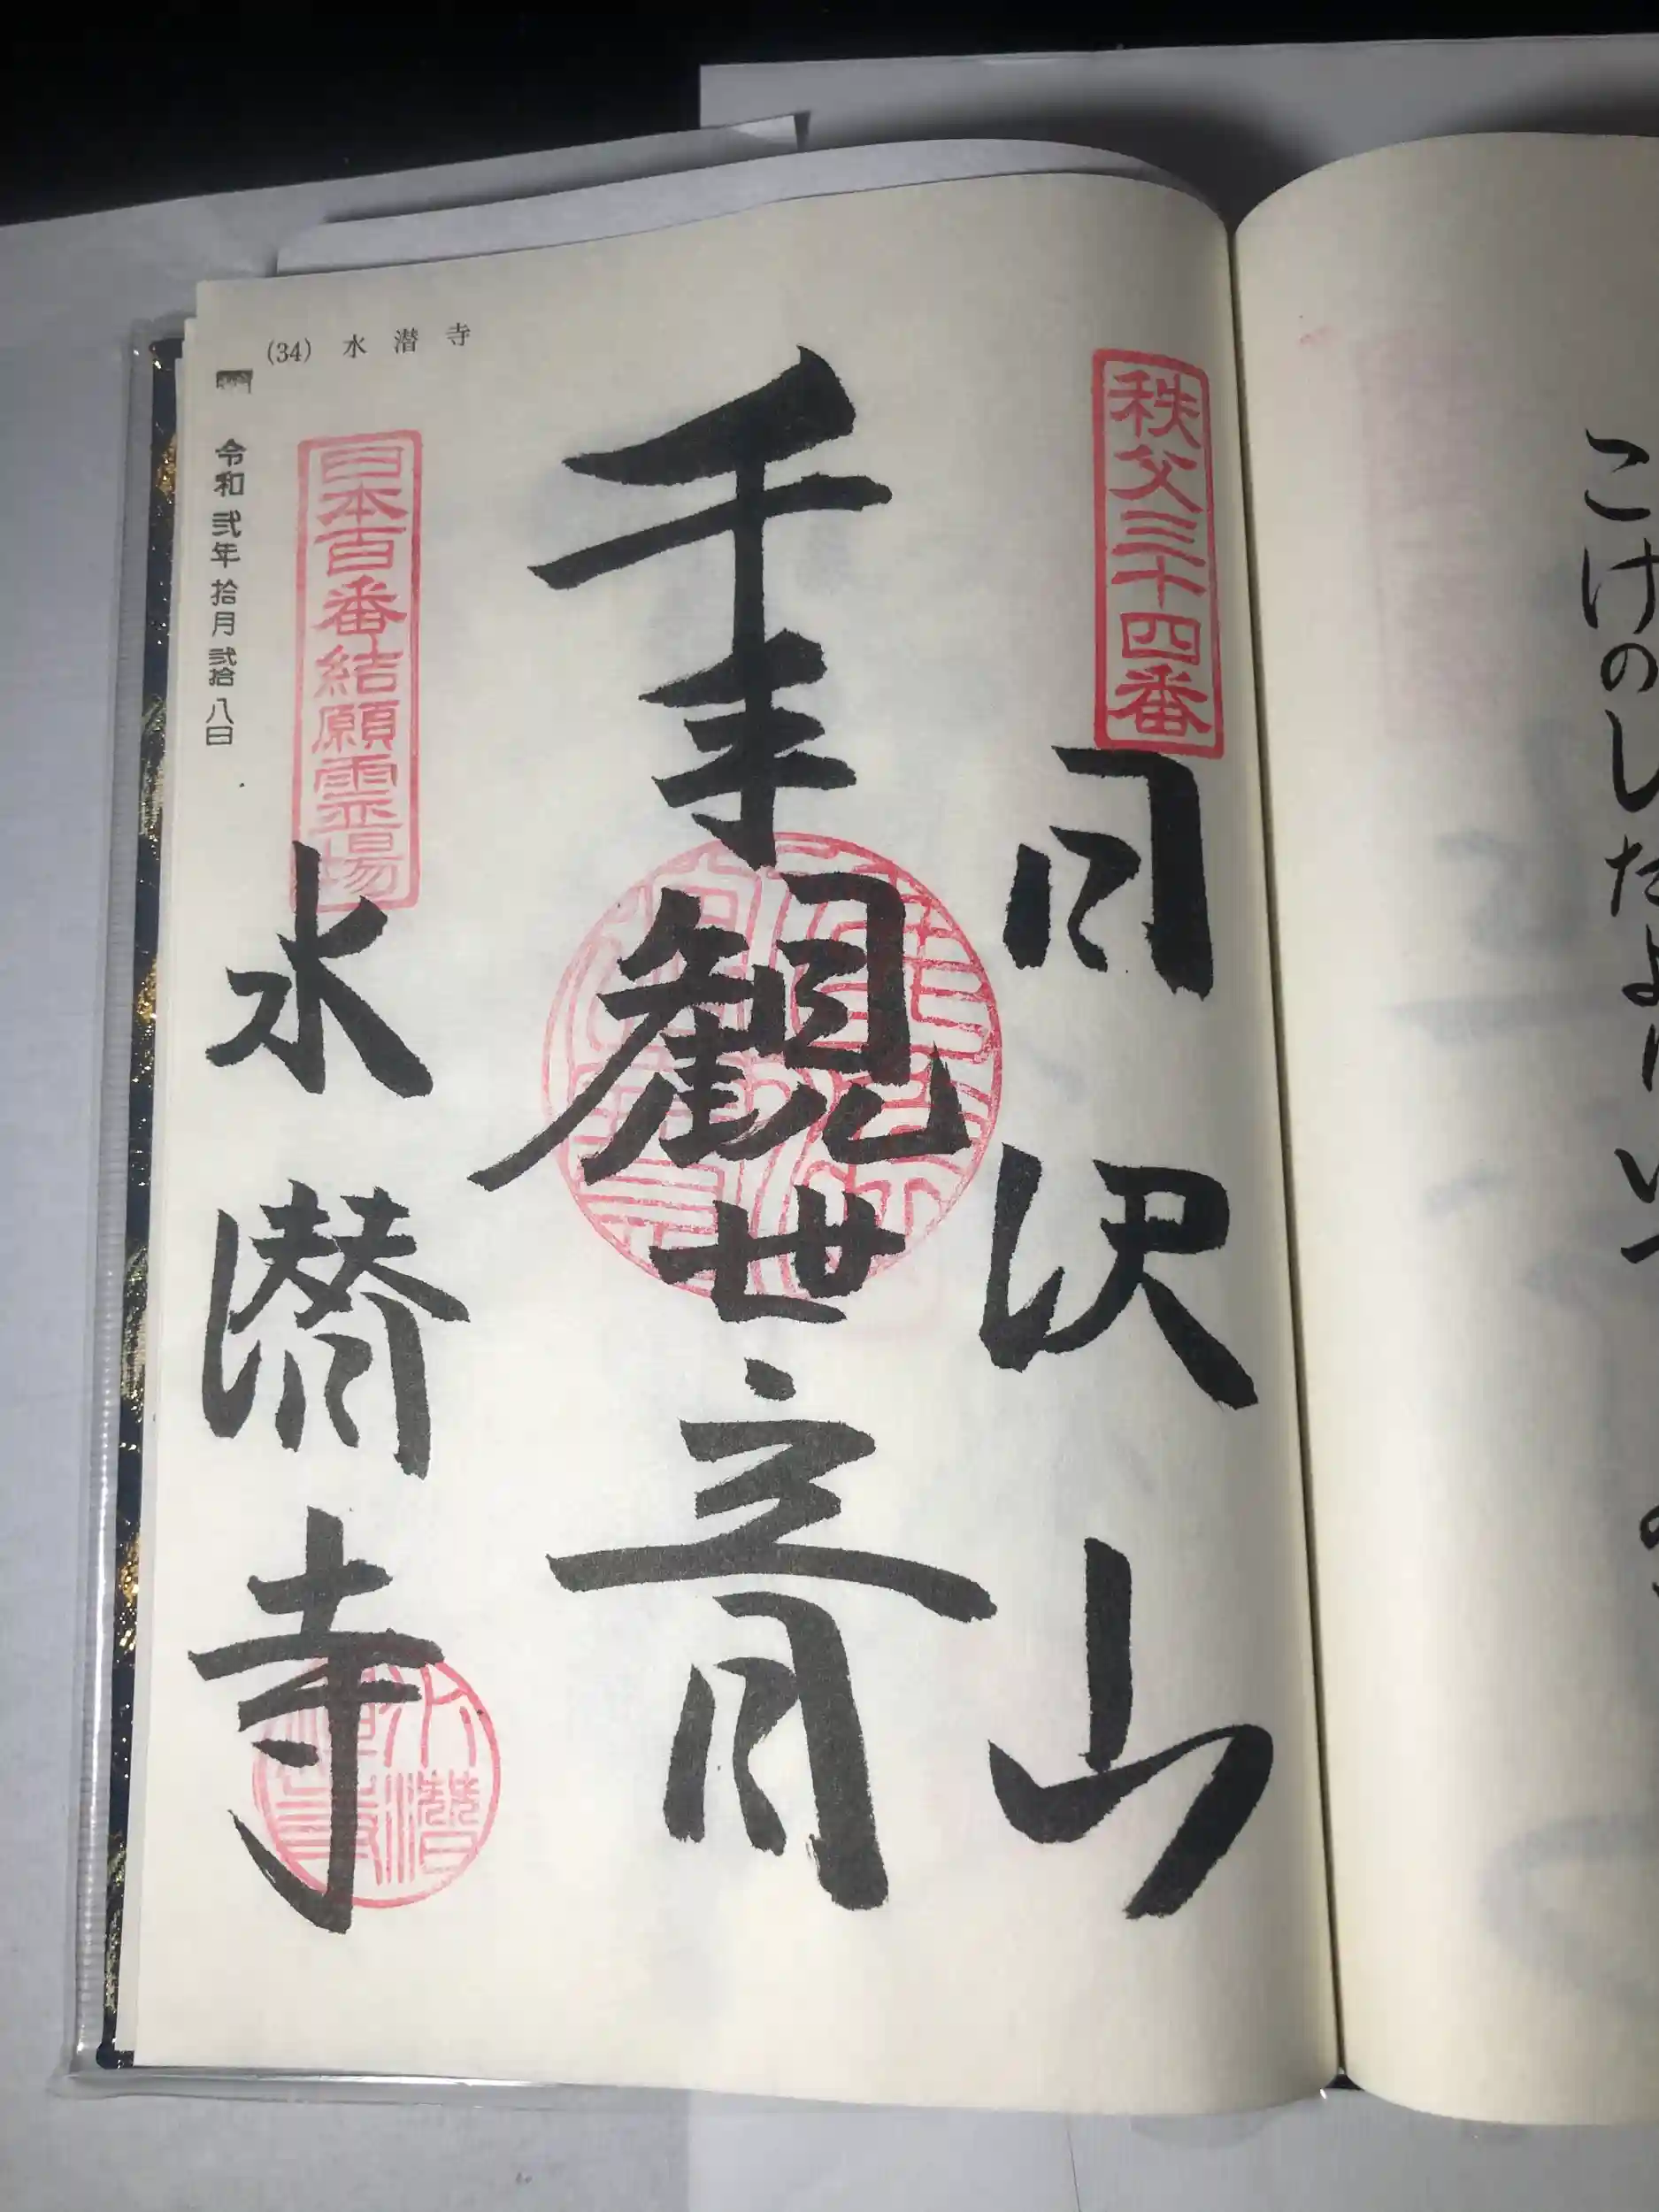 (34) 水潜寺
秩父三十四番
日沢山
千手観世音
日本百番結願霊場
水潜寺
令和弐年拾月弐拾八日
こけのしたより